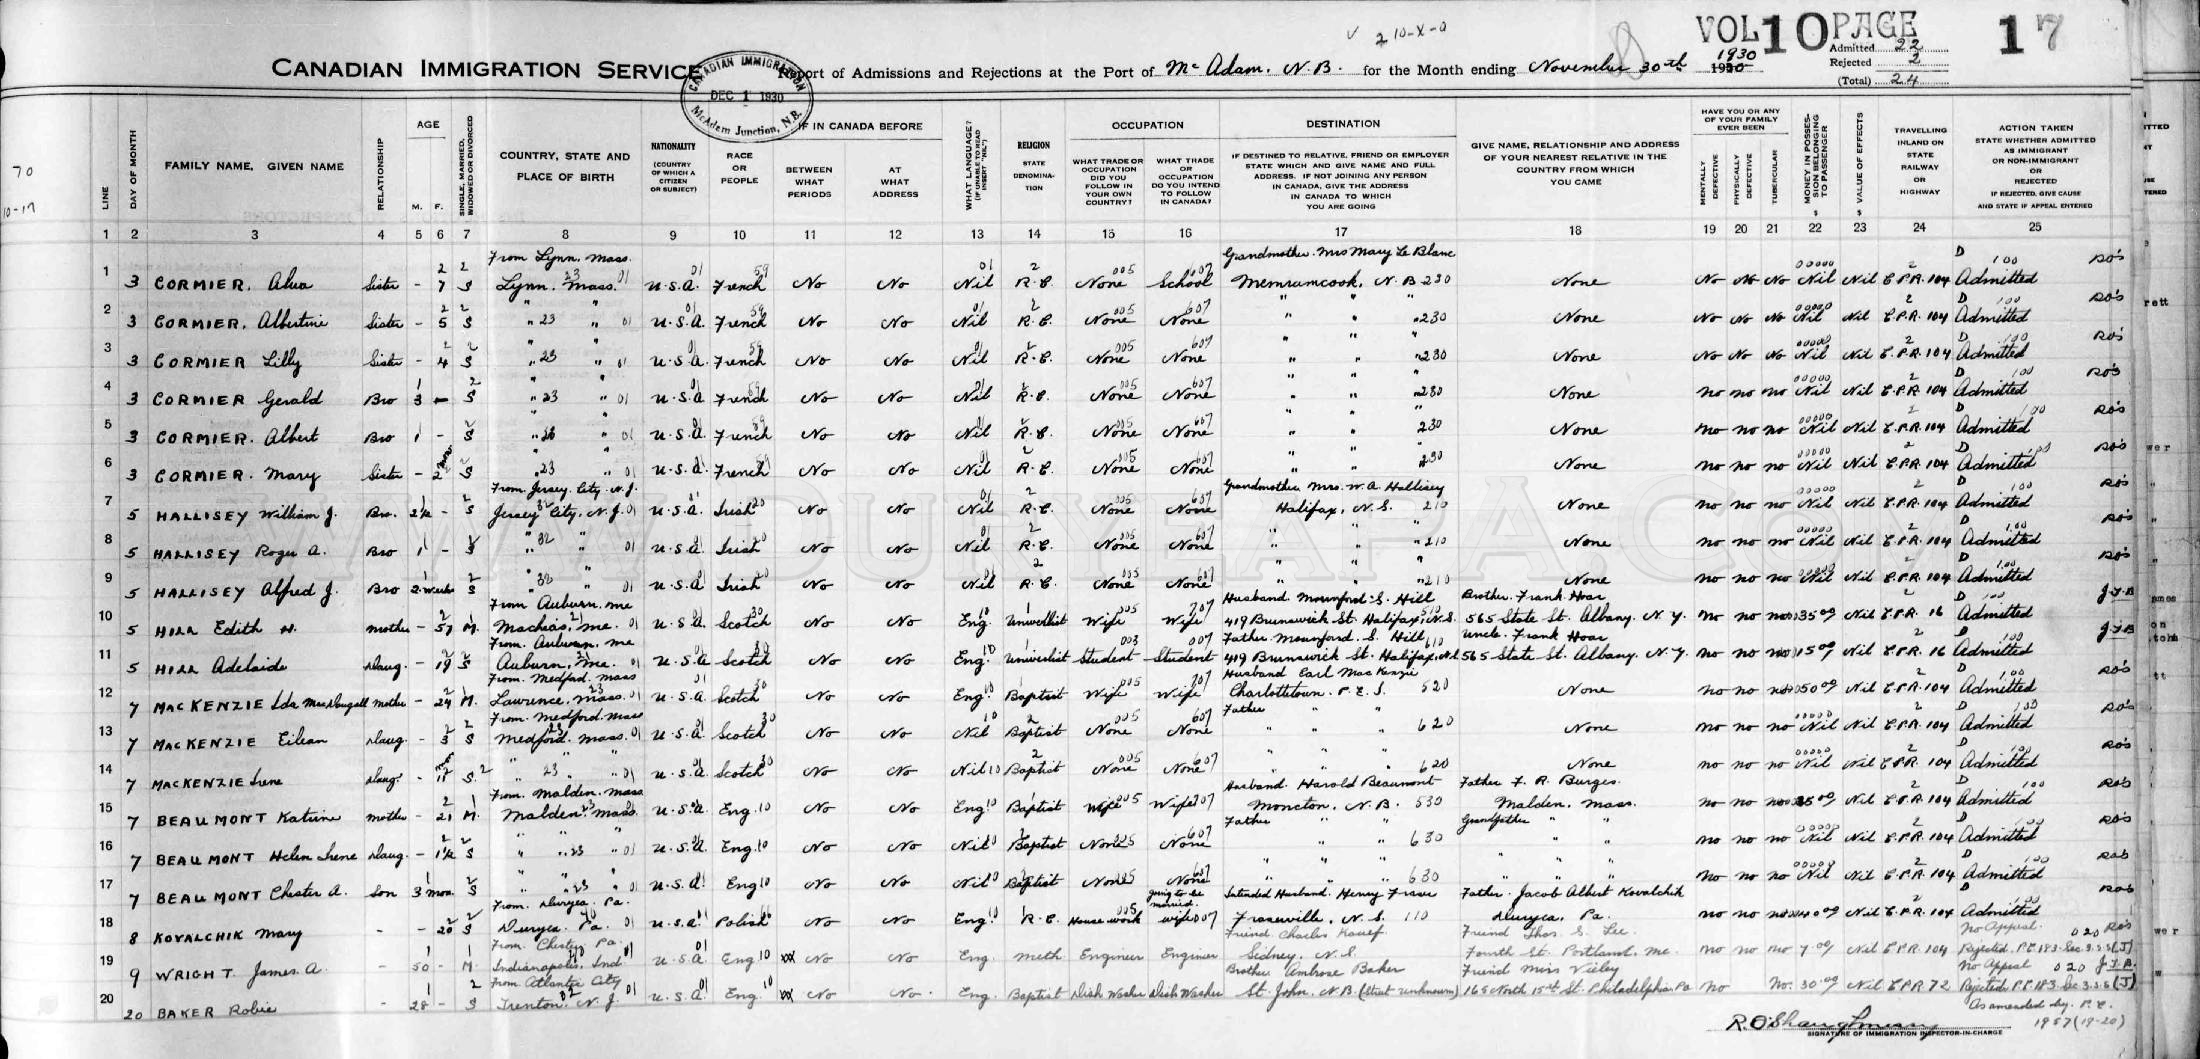 2 10-X-0
VOL 10 PAGE 17
Admitted 22
Rejected 2
(Total) 24
CANADIAN IMMIGRATION SERVICE
CANADIAN IMMIGRATION
DEC 1 1930
McAdam Junction, N.B.
Report of Admissions and Rejections at the Port of Mc Adam. N.B. for the Month ending November 30th 1930
70
10-17
LINE
DAY OF MONTH
FAMILY NAME, GIVEN NAME
RELATIONSHIP
AGE
M. F.
SINGLE, MARRIED, WIDOWED OR DIVORCED
COUNTRY, STATE AND PLACE OF BIRTH
NATIONALITY (COUNTRY OF WHICH A CITIZEN OR SUBJECT)
RACE OR PEOPLE
IF IN CANADA BEFORE
BETWEEN WHAT PERIODS
AT WHAT ADDRESS
WHAT LANGUAGE? (IF UNABLE TO READ INSERT "NIL")
RELIGION STATE DENOMINATION
OCCUPATION
WHAT TRADE OR OCCUPATION DID YOU FOLLOW IN YOUR OWN COUNTRY?
WHAT TRADE OR OCCUPATION DO YOU INTEND TO FOLLOW IN CANADA?
DESTINATION
IF DESTINED TO RELATIVE, FRIEND OR EMPLOYER STATE WHICH AND GIVE NAME AND FULL ADDRESS. IF NOT JOINING ANY PERSON IN CANADA, GIVE THE ADDRESS IN CANADA TO WHICH YOU ARE GOING
GIVE NAME, RELATIONSHIP AND ADDRESS OF YOUR NEAREST RELATIVE IN THE COUNTRY FROM WHICH YOU CAME
HAVE YOU OR ANY OF YOUR FAMILY EVER BEEN
MENTALLY DEFECTIVE
PHYSICALLY DEFECTIVE
TUBERCULAR
MONEY IN POSSESSION BELONGING TO PASSENGER $
VALUE OF EFFECTS $
TRAVELLING INLAND ON STATE RAILWAY OR HIGHWAY
ACTION TAKEN STATE WHETHER ADMITTED AS IMMIGRANT OR NON-IMMIGRANT OR REJECTED IF REJECTED, GIVE CAUSE AND STATE IF APPEAL ENTERED
1 2 3 4 5 6 7 8 9 10 11 12 13 14 15 16 17 18 19 20 21 22 23 24 25
From Lynn, Mass. Grandmother. Mrs Mary Le Blanc
1 3 CORMIER, Alva Sister - 7 S Lynn, Mass. U.S.A. French No No Nil R.C. None School Memramcook, N.B 230 None No No No Nil Nil C.P.R. 104 Admitted
2 3 CORMIER, Albertine Sister - 5 S " 23 " 01 U.S.A. French No No Nil R.C. None None " " " 230 None No No No Nil Nil C.P.R. 104 Admitted
3 3 CORMIER Lilly Sister - 4 S " 23 " 01 U.S.A. French No No Nil R.C. None None " " " 230 None No No No Nil Nil C.P.R. 104 Admitted
4 3 CORMIER Gerald Bro 3 - S " 23 " 01 U.S.A. French No No Nil R.C. None None " " " 230 None No no no Nil Nil C.P.R. 104 Admitted
5 3 CORMIER. Albert Bro 1 - S " " 01 U.S.A. French No No Nil R.C. None None " " 230 None no no no Nil Nil C.P.R. 104 Admitted
6 3 CORMIER. Mary Sister - 2 mos S " 23 " 01 U.S.A. French No No Nil R.C. None None " " 230 None no no no Nil Nil C.P.R. 104 Admitted
From Jersey City. N.J. Grandmother. Mrs. W.A. Hallisey
7 5 HALLISEY William J. Bro. 2½ - S Jersey City, N.J. U.S.A. Irish No No Nil R.C. None None Halifax, N.S. 210 None no no no Nil Nil C.P.R. 104 Admitted
8 5 HALLISEY Roger A. Bro 1 - S " " 01 U.S.A. Irish No No Nil R.C. None None " " " 210 None no no no Nil Nil C.P.R. 104 Admitted
9 5 HALLISEY Alfred J. Bro 2 weeks S " " 01 U.S.A. Irish No No Nil R.C. None None " " " 210 None no no no Nil Nil C.P.R. 104 Admitted
From Auburn, Me Husband. Mounford S. Hill Brother. Frank Hoar
10 5 HILL Edith H. mother - 57 M. Machias, Me. 01 U.S.A. Scotch No No Eng. Wife Wife 419 Brunswick St. Halifax, N.S. 565 State St. Albany. N.Y. no no no 35 00 Nil C.P.R. 16 Admitted
From Auburn, Me Father Mounford. S. Hill Uncle. Frank Hoar
11 5 HILL Adelaide Daug. - 19 S Auburn, Me. 01 U.S.A Scotch No No Eng. Student Student 419 Brunswick St. Halifax, N.S. 565 State St. Albany. N.Y. no no no 15 00 Nil C.P.R. 16 Admitted
From. Medford. Mass Husband Earl MacKenzie
12 7 MACKENZIE Ida MacDougall mother - 24 M. Lawrence, Mass. 01 U.S.A. Scotch No No Eng Baptist Wife Wife Charlottetown. P.E.I. 520 None no no no 50 00 Nil C.P.R. 104 Admitted
From. Medford. Mass Father " "
13 7 MACKENZIE Eilean Daug. - 3 S Medford. Mass. 01 U.S.A. Scotch No No Nil Baptist None None " " " 620 None no no no Nil Nil C.P.R. 104 Admitted
14 7 MACKENZIE Irene Daug. - S " 23 " 01 U.S.A. Scotch No No Nil Baptist None None " " " 620 None no no no Nil Nil C.P.R. 104 Admitted
From. Malden. Mass Husband Harold Beaumont Father F. R. Burges.
15 7 BEAUMONT Katrine mother - 21 M. Malden. Mass. U.S.A. Eng. 10 No No Eng. Baptist Wife Wife Moncton, N.B. 530 Malden, Mass. no no no 00 Nil C.P.R. 104 Admitted
Father " " Grandfather " "
16 7 BEAUMONT Helen Irene Daug. - 1½ S " " 23 " 01 U.S.A. Eng. 10 No No Nil Baptist None None " " " 630 " " no no no Nil Nil C.P.R. 104 Admitted
17 7 BEAUMONT Chester A. Son 3 mos. S " " 23 " 01 U.S.A. Eng 10 No No Nil Baptist None None " " " 630 " " no no no Nil Nil C.P.R. 104 Admitted
From. Duryea. Pa. going to be married. Intended Husband. Henry Father. Jacob Albert Kovalchik
18 8 KOVALCHIK Mary - - 20 S Duryea. Pa. 01 U.S.A. Polish No No Eng R.C. House work wife Fraserville, N.S. 110 Duryea, Pa. no no no 40 00 Nil C.P.R. 104 Admitted
From. Chester Pa. Friend Charles Friend Thos. S. Lee. No Appeal. 020 RO's
19 9 WRIGHT James A. - 50 - M. Indianapolis, Ind U.S.A. Eng 10 No No Eng. Meth Engineer Engineer Sidney, N.S. Fourth St. Portland, Me. no no no 7 00 Nil C.P.R. 104 Rejected. P.C. 183 Sec 3.s.s (J)
From Atlantic City Brother Ambrose Baker Friend Miss No Appeal 020
20 20 BAKER Robie - 28 - S Trenton, N.J. U.S.A. Eng. No No. Eng. Baptist Dish Washer Dish Washer St. John, N.B. (Street unknown) 165 North 15th St. Philadelphia Pa no No. 30 00 Nil C.P.R 72 Rejected P.C. 183 Sec 3.s.s (J)
As amended by. P.C. 1957 (19-20)
R. O'Shaughnessy
SIGNATURE OF IMMIGRATION INSPECTOR-IN-CHARGE